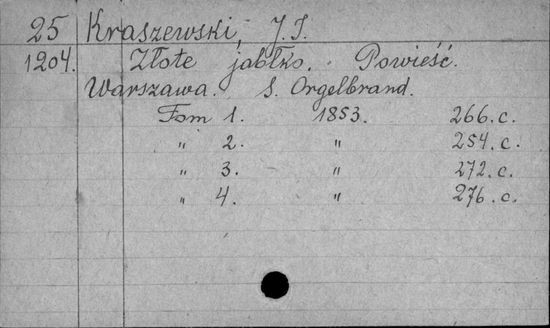 25 Kraszewski, J. I.
1204. Złote jabłko. Powieść.
Warszawa. S. Orgelbrand.
Tom 1. 1853. 266. c.
" 2. " 254. c.
" 3. " 272. c.
" 4. " 276. c.